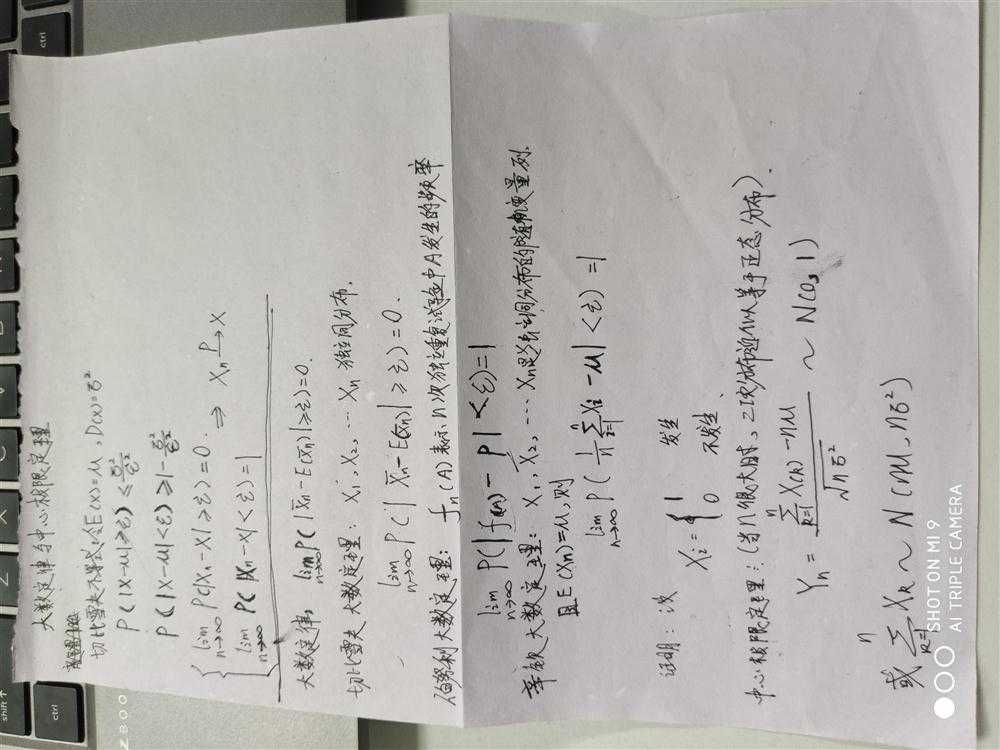 大数定律与中心极限定理
切比雪夫不等式 令E(x)=μ, D(x)=σ²
P(|X-μ|≥ε)≤σ²/ε²
P(|X-μ|<ε)≥1-σ²/ε²
lim n→∞ P(|X₁-X|≥ε)=0. ⇒ Xn P→ X
lim n→∞ P(|Xn-X|<ε)=1
大数定律, lim n→∞ P(|X̄n-E(X̄n)|≥ε)=0.
切比雪夫大数定理: X₁, X₂, … Xn 独立同分布.
lim n→∞ P(|X̄n-E(X̄n)|≥ε)=0.
伯努利大数定理: fn(A)表示n次独立重复试验中A发生的频率
lim n→∞ P(|f(n)-P|<ε)=1
辛钦大数定理: X₁, X₂, … Xn是独立同分布的随机变量列.
且E(Xn)=μ,则
lim n→∞ P(|1/n Σ i=1 n Xi-μ|<ε)=1
证明: 次 Xi={ 1 发生
0 不发生.
中心极限定理: (当n很大时、二项分布近似等于正态分布).
Yn = (Σ k=1 n X(k)-nμ)/√nσ² ~ N(0,1)
或 Σ k=1 n Xk ~ N(nμ, nσ²)
SHOT ON MI 9
AI TRIPLE CAMERA
ctrl
alt
Z
X
shift
ctrl